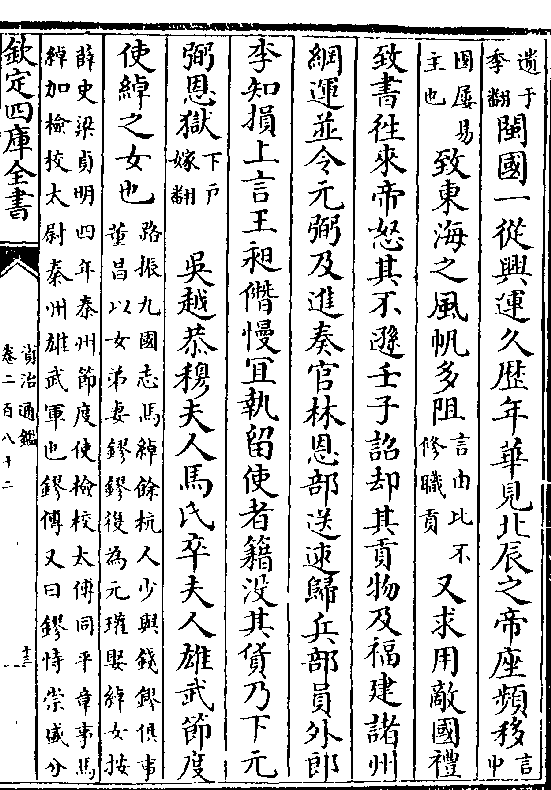 遺于
季翻
閩國一從興運久歴年華見北辰之帝座頻移
言中
國屢易
主也
致東海之風帆多阻
言由此不
修職貢
又求用敵國禮
致書往來帝怒其不遜壬子詔却其貢物及福建諸州
綱運並令元弼及進奏官林恩部送速歸兵部員外郎
李知損上言王昶僭慢宜執留使者籍没其貨乃下元
弼恩獄
下戸
嫁翻
吳越恭穆夫人馬氏卒夫人雄武節度
使綽之女也
路振九國志馬綽餘杭人少與錢鏐俱事
董昌以女弟妻鏐鏐後為元瓘娶綽女按
薛史梁貞明四年秦州節度使檢校太傅同平章事馬
綽加檢校太尉秦州雄武軍也鏐傳又曰鏐恃崇盛分
欽定四庫全書
資治通鑑
卷二百八十二
十三